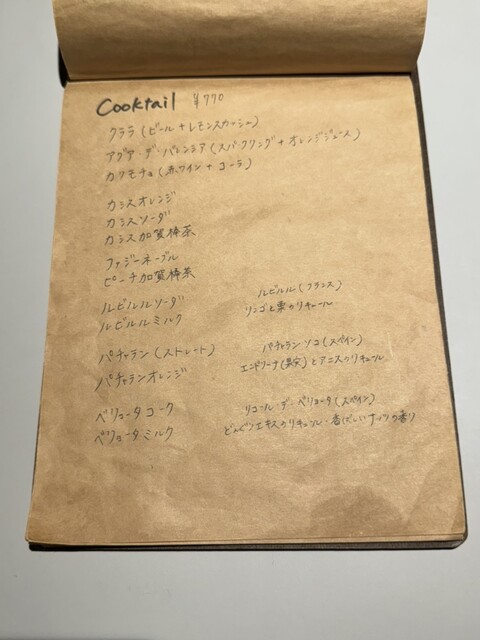 Cooktail ¥770
クララ(ビール+レモンスカッシュ)
アグア・デ・バレンシア(スパークリング+オレンジジュース)
カリモチョ(赤ワイン+コーラ)
カシスオレンジ
カシスソーダ
カシス加賀棒茶
ファジーネーブル
ピーチ加賀棒茶
ルビルルソーダ
ルビルルミルク
ルビルル(フランス)
リンゴと栗のリキュール
パチャラン(ストレート)
パチャランオレンジ
パチャラン ソコ(スペイン)
エンドリーナ( )とアニスのリキュール
ベリョータコーク
ベリョータミルク
リコール・デ・ベリョータ(スペイン)
どんぐりエキスのリキュール・香ばしいナッツの香り